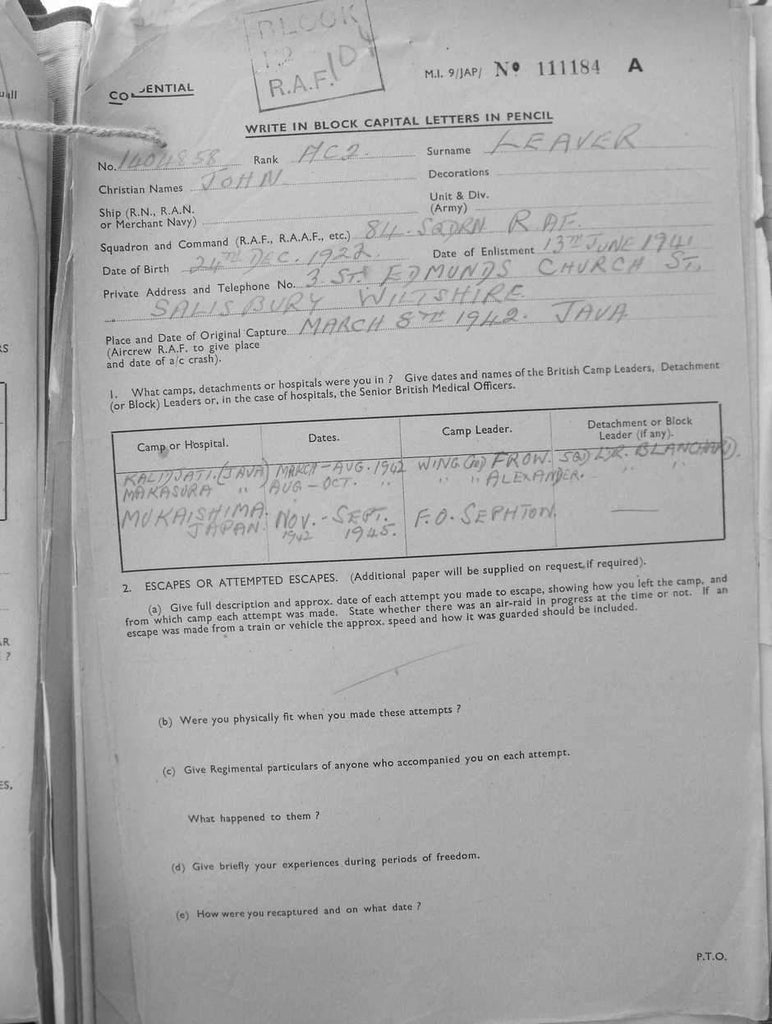 BLOCK
12
R.A.F. 104
CO ENTIAL
M.I. 9/JAP/ Nº 111184 A
WRITE IN BLOCK CAPITAL LETTERS IN PENCIL
No. 1404858 Rank AC2. Surname LEAVER
Christian Names JOHN Decorations
Ship (R.N., R.A.N. or Merchant Navy) Unit & Div. (Army)
Squadron and Command (R.A.F., R.A.A.F., etc.) 84. SQDRN R.A.F.
Date of Birth 24TH DEC. 1922. Date of Enlistment 13TH JUNE 1941
Private Address and Telephone No. 3. ST. EDMUNDS CHURCH ST.
SALISBURY WILTSHIRE
Place and Date of Original Capture MARCH 8TH 1942. JAVA
(Aircrew R.A.F. to give place
and date of a/c crash).
1. What camps, detachments or hospitals were you in ? Give dates and names of the British Camp Leaders, Detachment
(or Block) Leaders or, in the case of hospitals, the Senior British Medical Officers.
Camp or Hospital. Dates. Camp Leader. Detachment or Block Leader (if any).
KALIDJATI. (JAVA) MARCH - AUG. 1942 WING FROW. SQD LDR. BLANCHARD.
MAKASURA " AUG - OCT. " " " ALEXANDER. " " "
MUKAISHIMA. JAPAN. NOV. 1942 - SEPT. 1945. F.O. SEPHTON. —
2. ESCAPES OR ATTEMPTED ESCAPES. (Additional paper will be supplied on request, if required).
(a) Give full description and approx. date of each attempt you made to escape, showing how you left the camp, and
from which camp each attempt was made. State whether there was an air-raid in progress at the time or not. If an
escape was made from a train or vehicle the approx. speed and how it was guarded should be included.
(b) Were you physically fit when you made these attempts ?
(c) Give Regimental particulars of anyone who accompanied you on each attempt.
What happened to them ?
(d) Give briefly your experiences during periods of freedom.
(e) How were you recaptured and on what date ?
P.T.O.